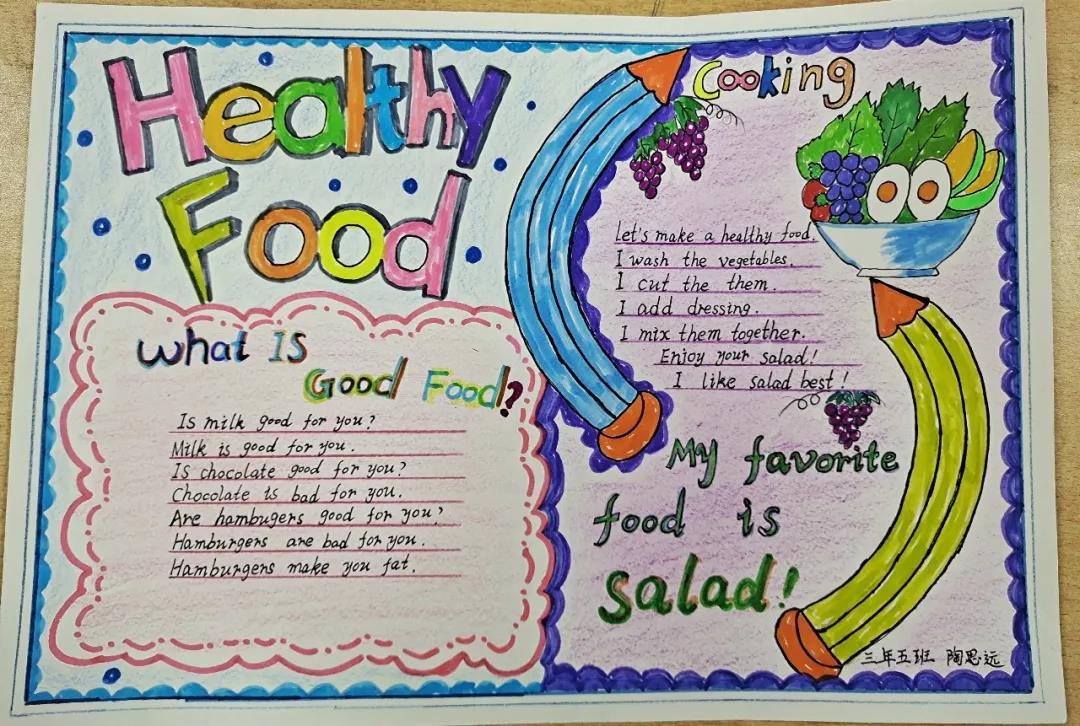 Healthy
Food
What Is
Good Food?
Is milk good for you?
Milk is good for you.
Is chocolate good for you?
Chocolate is bad for you.
Are hambugers good for you?
Hamburgers are bad for you.
Hamburgers make you fat.
Cooking
let's make a healthy food.
I wash the vegetables.
I cut the them.
I add dressing.
I mix them together.
Enjoy your salad!
I like salad best!
My favorite
food is
salad!
三年五班 陶思远